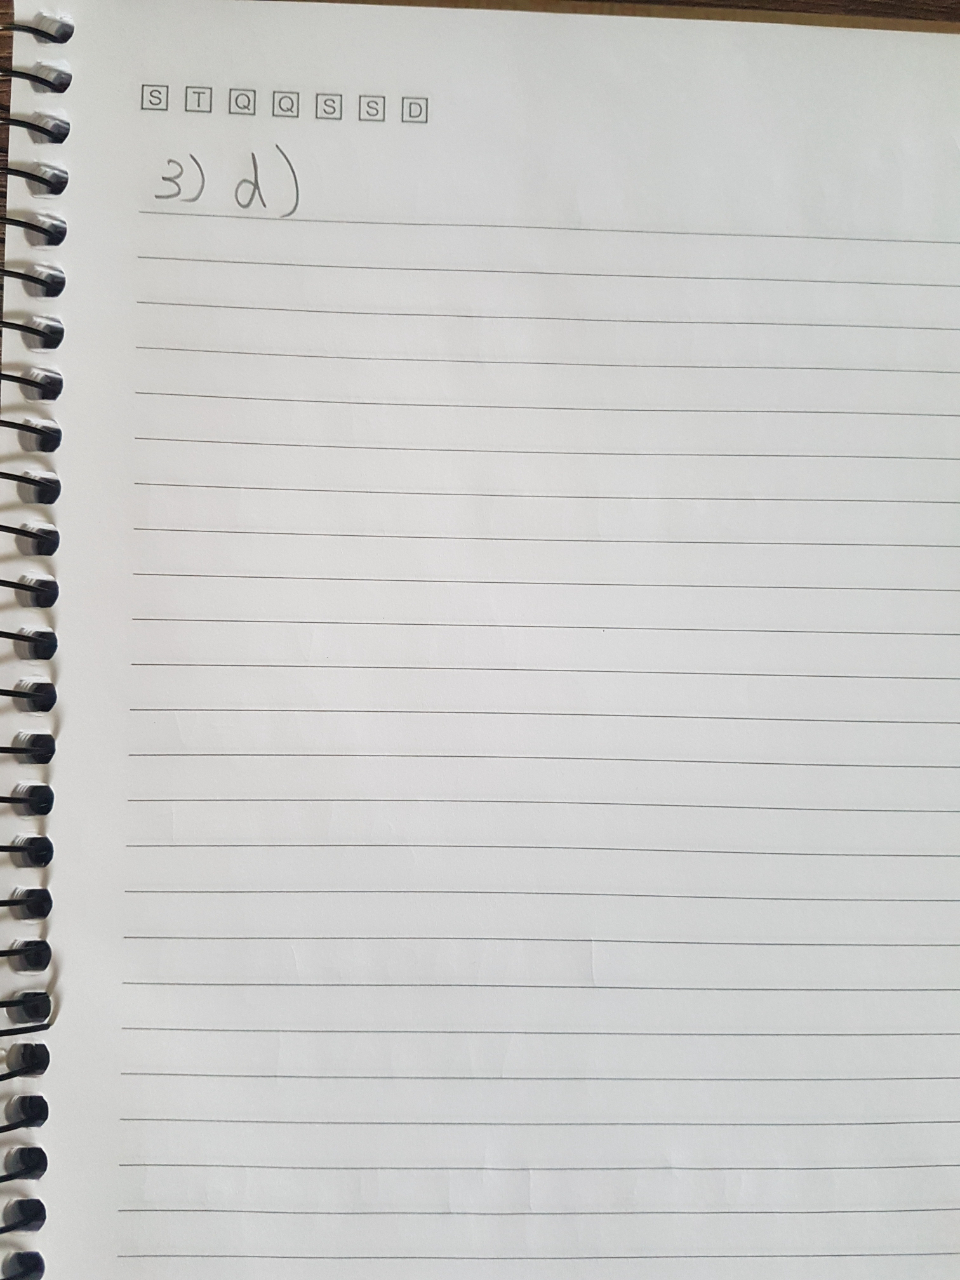 S T Q Q S S D
3) d)